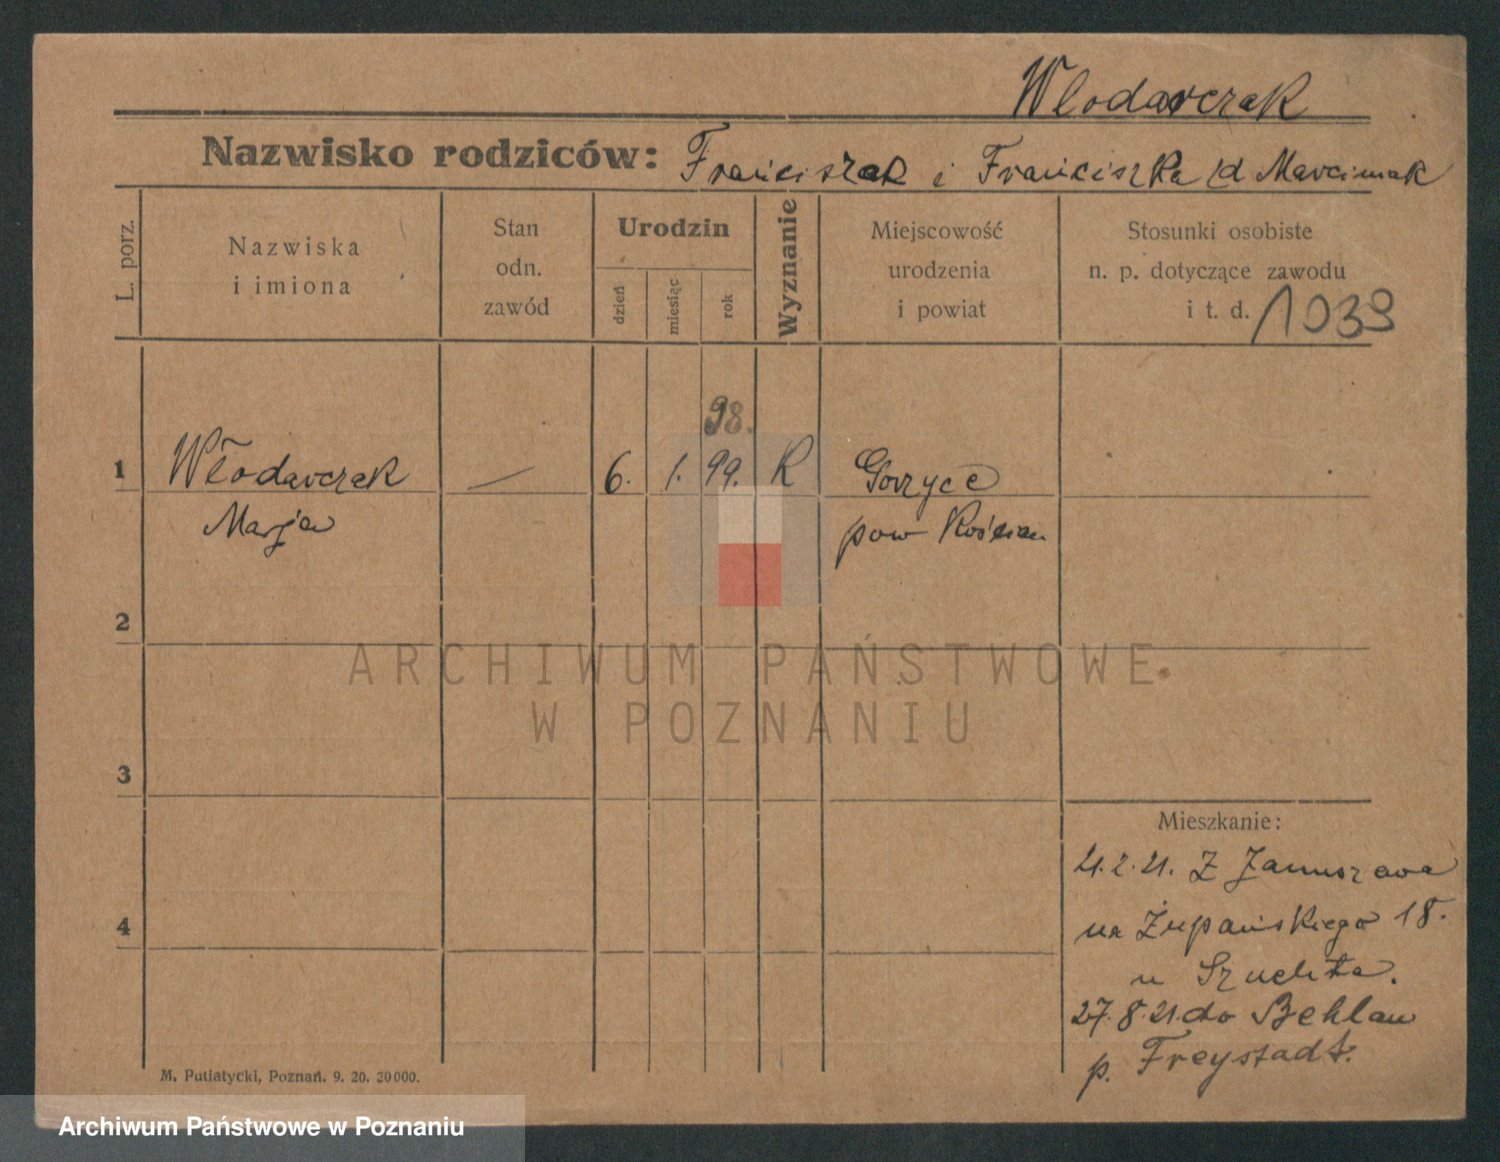 Wlodarczak
Nazwisko rodziców: Franciszek i Franciszka /d Marciniak
L. porz.
Nazwiska
i imiona
Stan
odn.
zawód
Urodzin
dzień
miesiąc
rok
Wyznanie
Miejscowość
urodzenia
i powiat
Stosunki osobiste
n. p. dotyczące zawodu
i t. d. 1039
98.
1 Włodarczak — 6. 1. 99. R Gorzyce
Marja pow Kościan
2
ARCHIWUM PAŃSTWOWE
W POZNANIU
3
Mieszkanie:
21.2.21. Z Januszewa
4
na Żupańskiego 18.
u
27.8.21. do Behlau
p. Freystadt.
M. Putiatycki, Poznań. 9. 20. 20000.
Archiwum Państwowe w Poznaniu